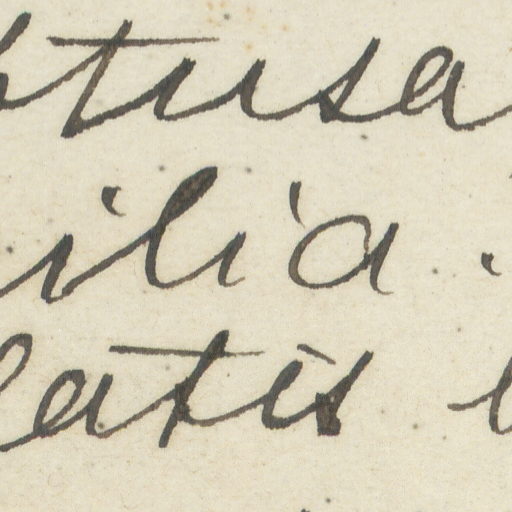 tusa
ilia.
latis